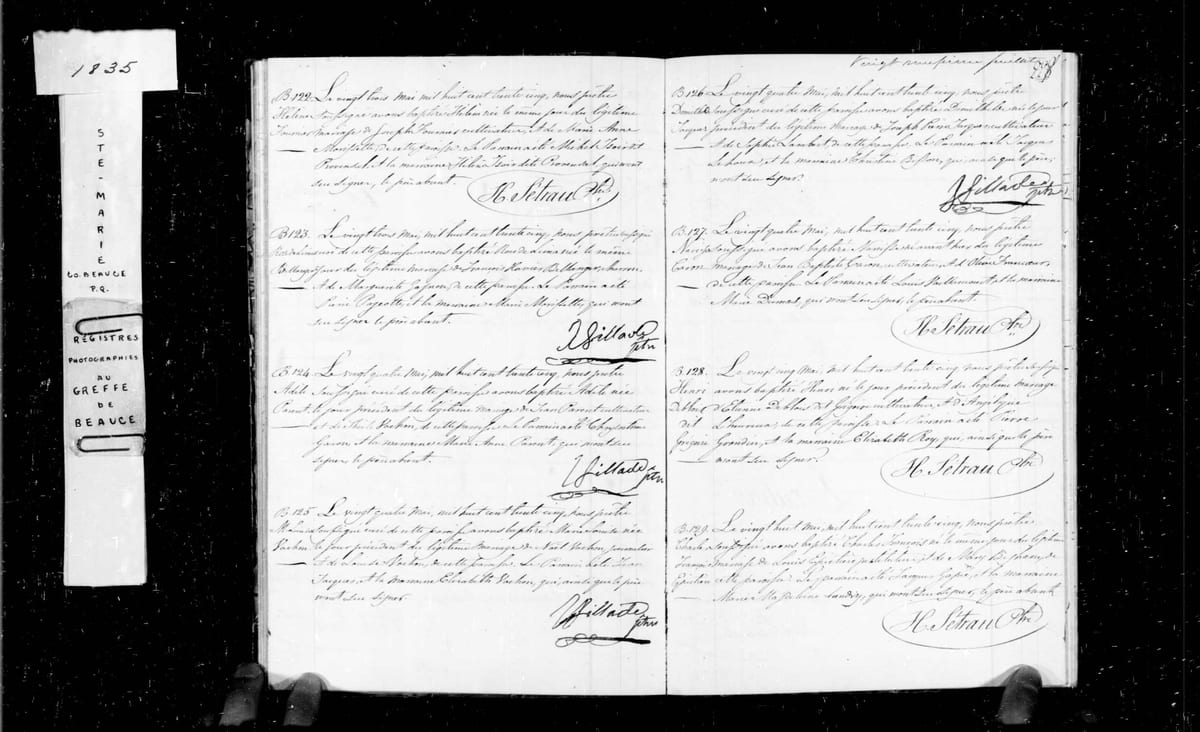 1835
STE-MARIE
CO. BEAUCE
P.Q.
REGISTRES
PHOTOGRAPHIES
AU
GREFFE
DE
BEAUCE
B.122. Le vingt trois mai mil huit cent trente cinq, nous prêtre
Hélène soussigné avons baptisé Hélène née le même jour du légitime
mariage de Joseph cultivateur, et de Marie Anne
Morissette de cette paroisse. Le Parrain a été Michel
Provençal et la marraine Hélène Provençal, qui n'ont
su signer, le père absent.
H. Sétrau Ptre.
B.123. Le vingt trois Mai, mil huit cent trente cinq, nous prêtre soussigné
curé de cette paroisse avons baptisé née le même
jour du légitime mariage de François Xavier
et de Marguerite Gagnon de cette paroisse. Le Parrain a été
Pierre et la marraine Marie Morissette, qui n'ont
su signer le père absent.
Villade ptre
B.124. Le vingt quatre Mai, mil huit cent trente cinq, nous prêtre
Adèle soussigné curé de cette paroisse avons baptisé Adèle née
Parent le jour précédent du légitime mariage de Jean Parent cultivateur
et de Vachon, de cette paroisse. Le Parrain a été Chrysostome
et la marraine Marie Anne Parent, qui n'ont su
signer, le père absent.
Villade ptre
B.125. Le vingt quatre Mai, mil huit cent trente cinq, nous prêtre
soussigné curé de cette paroisse avons baptisé Marie née
Vachon le jour précédent du légitime mariage de Noël Vachon journalier
et de Vachon, de cette paroisse. Le Parrain a été Jean
Jacques, et la marraine Elizabeth Vachon, qui, ainsi que le père
n'ont su signer.
Villade ptre
Vingt neuvième feuillet
B.126. Le vingt quatre Mai, mil huit cent trente cinq, nous prêtre
soussigné curé de cette paroisse avons baptisé née le jour
Jacques précédent du légitime mariage de Joseph Pierre Jacques cultivateur
et de Sophie Lambert de cette paroisse. Le Parrain a été Jacques
et la marraine Christine Bisson, qui, ainsi que le père,
n'ont su signer.
Villade ptre
B.127. Le vingt quatre Mai, mil huit cent trente cinq, nous prêtre
Narcisse soussigné avons baptisé Narcisse né avant hier du légitime
Caron mariage de Jean Baptiste Caron cultivateur, et d'Olive
de cette paroisse. Le Parrain a été Louis et la marraine
Marie qui n'ont su signer, le père absent.
H. Sétrau Ptre.
B.128. Le vingt cinq Mai, mil huit cent trente cinq nous prêtre soussigné
Henri avons baptisé Henri né le jour précédent du légitime mariage
Deblois d'Etienne Deblois dit Grégoire cultivateur, et d'Angélique
dit L'heureux, de cette paroisse. Le Parrain a été Pierre
Grégoire Grondin, et la marraine Elizabeth Roy, qui, ainsi que le père
n'ont su signer.
H. Sétrau Ptre
B.129. Le vingt huit Mai, mil huit cent trente cinq, nous prêtre
Charles soussigné avons baptisé Charles François né le même jour du légitime
François mariage de Louis et de Mary de
cette paroisse. Le parrain a été Jacques et la marraine
Marie Magdeleine Landry, qui n'ont su signer, le père absent
H. Sétrau Ptre